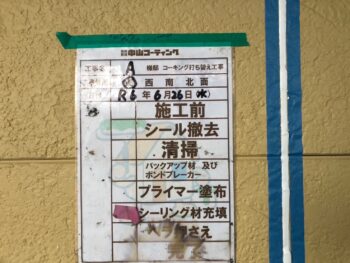 中山コーティング
工事名 A 様邸 コーキング打ち替え工事
東 西 南 北 面
R6年 6月26日(水)
施工前
シール撤去
清掃
バックアップ材 及び
ボンドブレーカー
プライマー塗布
シーリング材充填
ヘラ押さえ